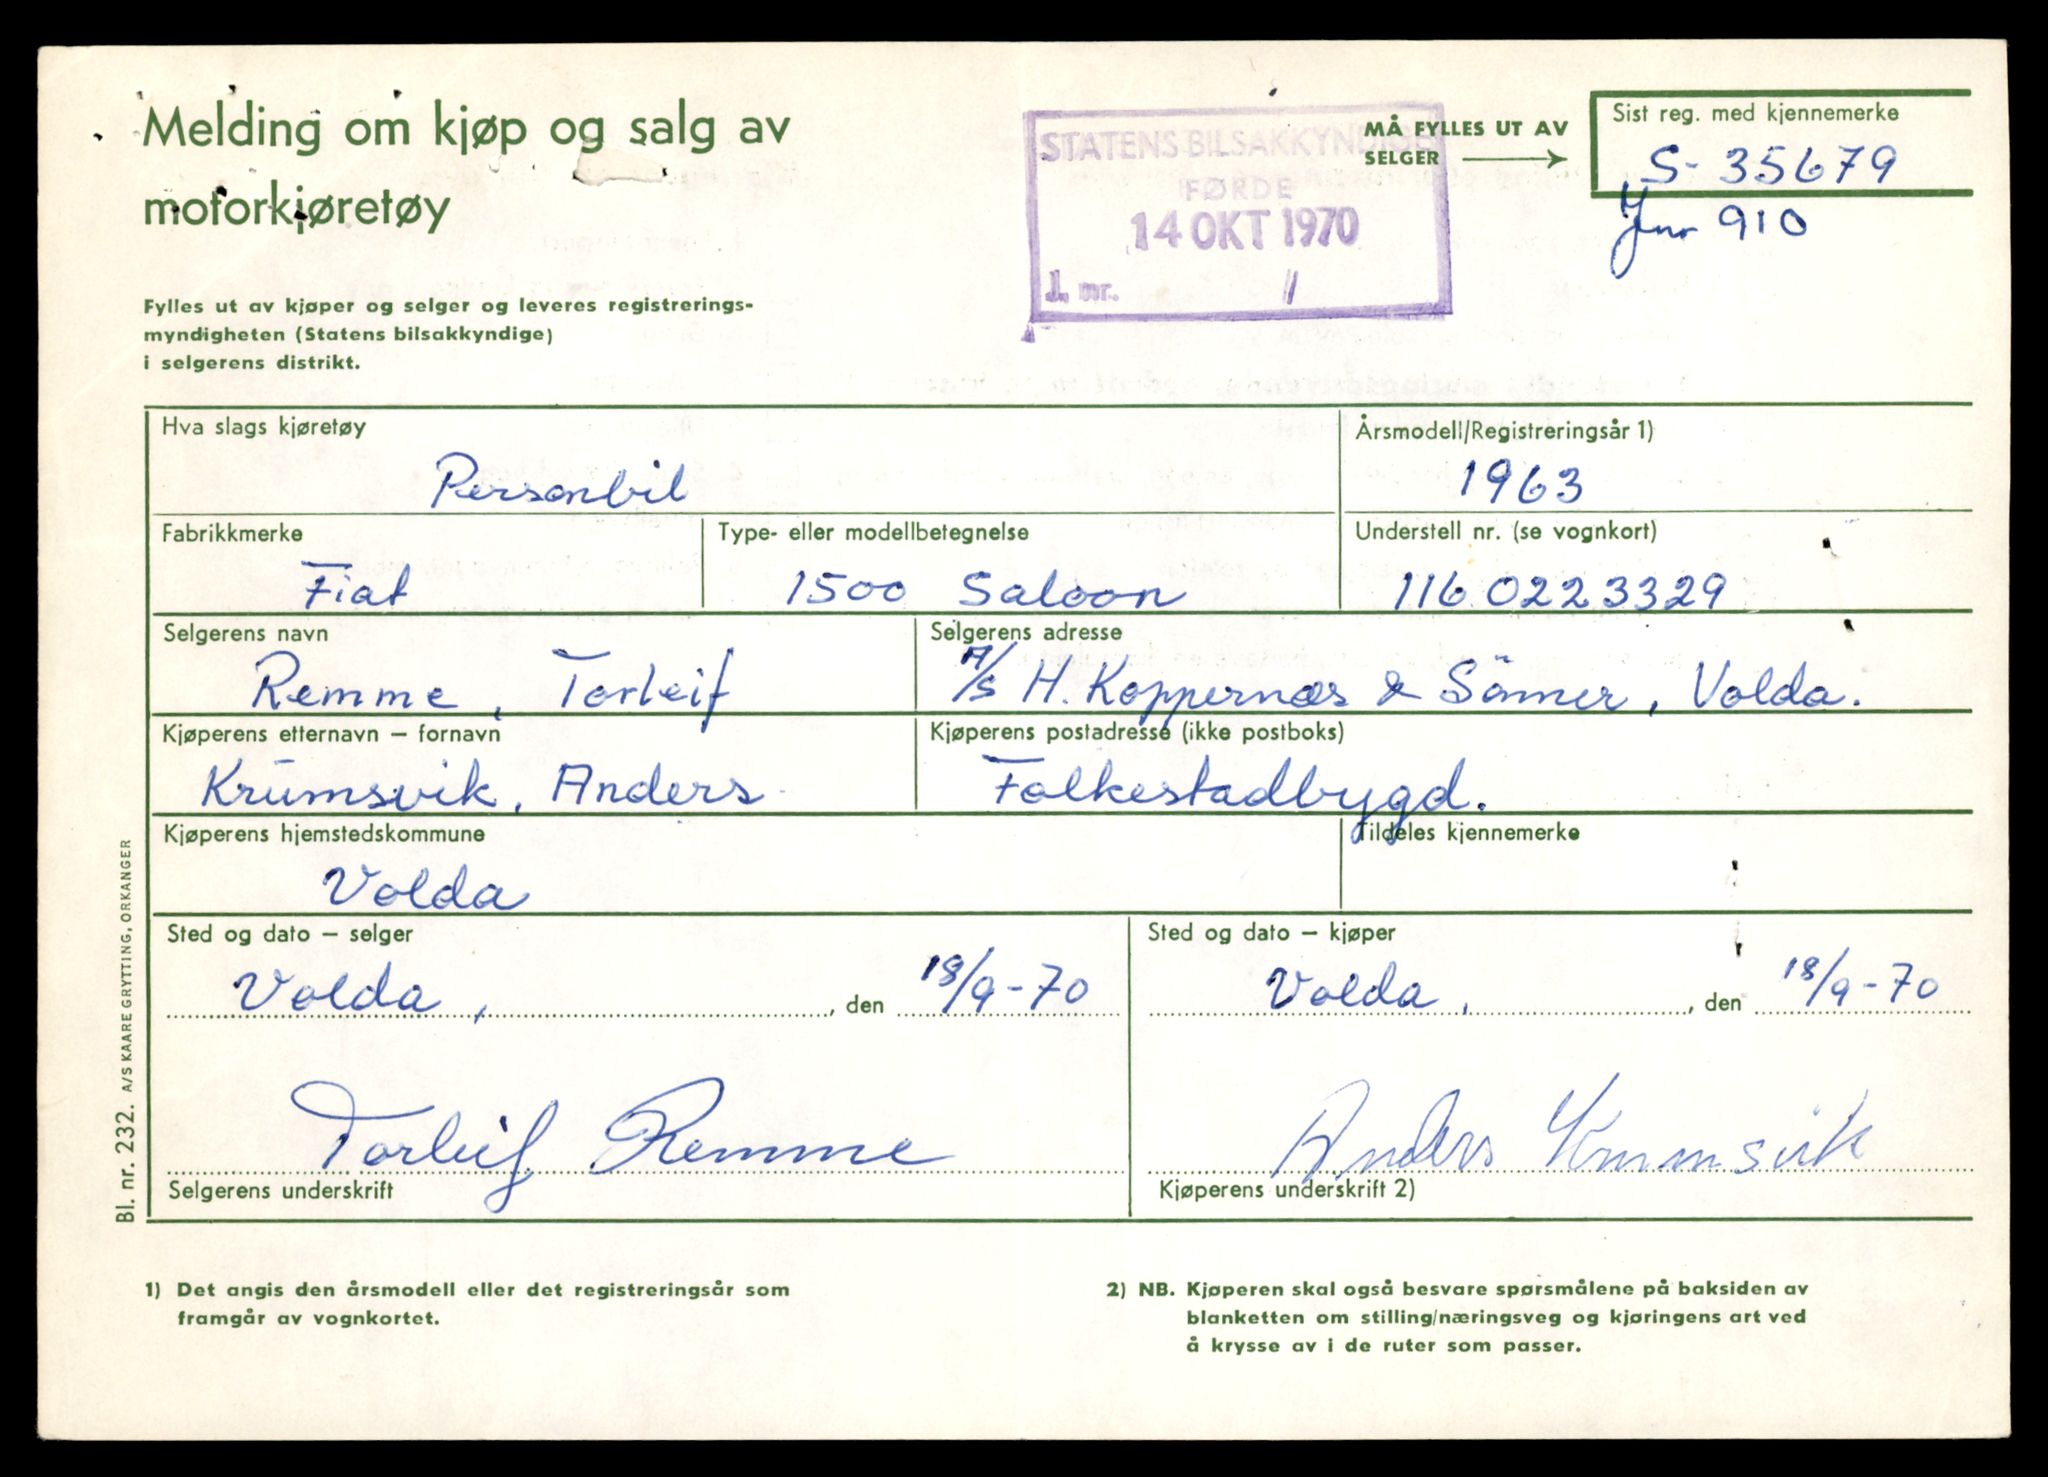 Melding om kjøp og salg av
motorkjøretøy
STATENS BILSAKKYNDIGE
FØRDE
14 OKT 1970
J. nr. /
MÅ FYLLES UT AV
SELGER
Sist reg. med kjennemerke
S-35679
Jnr 910
Fylles ut av kjøper og selger og leveres registrerings-
myndigheten (Statens bilsakkyndige)
i selgerens distrikt.
Hva slags kjøretøy
Personbil
Årsmodell/Registreringsår 1)
1963
Fabrikkmerke
Fiat
Type- eller modellbetegnelse
1500 Saloon
Understell nr. (se vognkort)
116 0223329
Selgerens navn
Remme, Torleif
Selgerens adresse
A/S H. Koppernæs & Sönner, Volda.
Kjøperens etternavn – fornavn
Krumsvik, Anders
Kjøperens postadresse (ikke postboks)
Folkestadbygd.
Kjøperens hjemstedskommune
Volda
Tildeles kjennemerke
Sted og dato – selger
Volda, , den 18/9-70
Sted og dato – kjøper
Volda, , den 18/9-70
Torleif Remme
Selgerens underskrift
Anders Krumsvik
Kjøperens underskrift 2)
Bl. nr. 232. A/S KAARE GRYTTING, ORKANGER
1) Det angis den årsmodell eller det registreringsår som
framgår av vognkortet.
2) NB. Kjøperen skal også besvare spørsmålene på baksiden av
blanketten om stilling/næringsveg og kjøringens art ved
å krysse av i de ruter som passer.